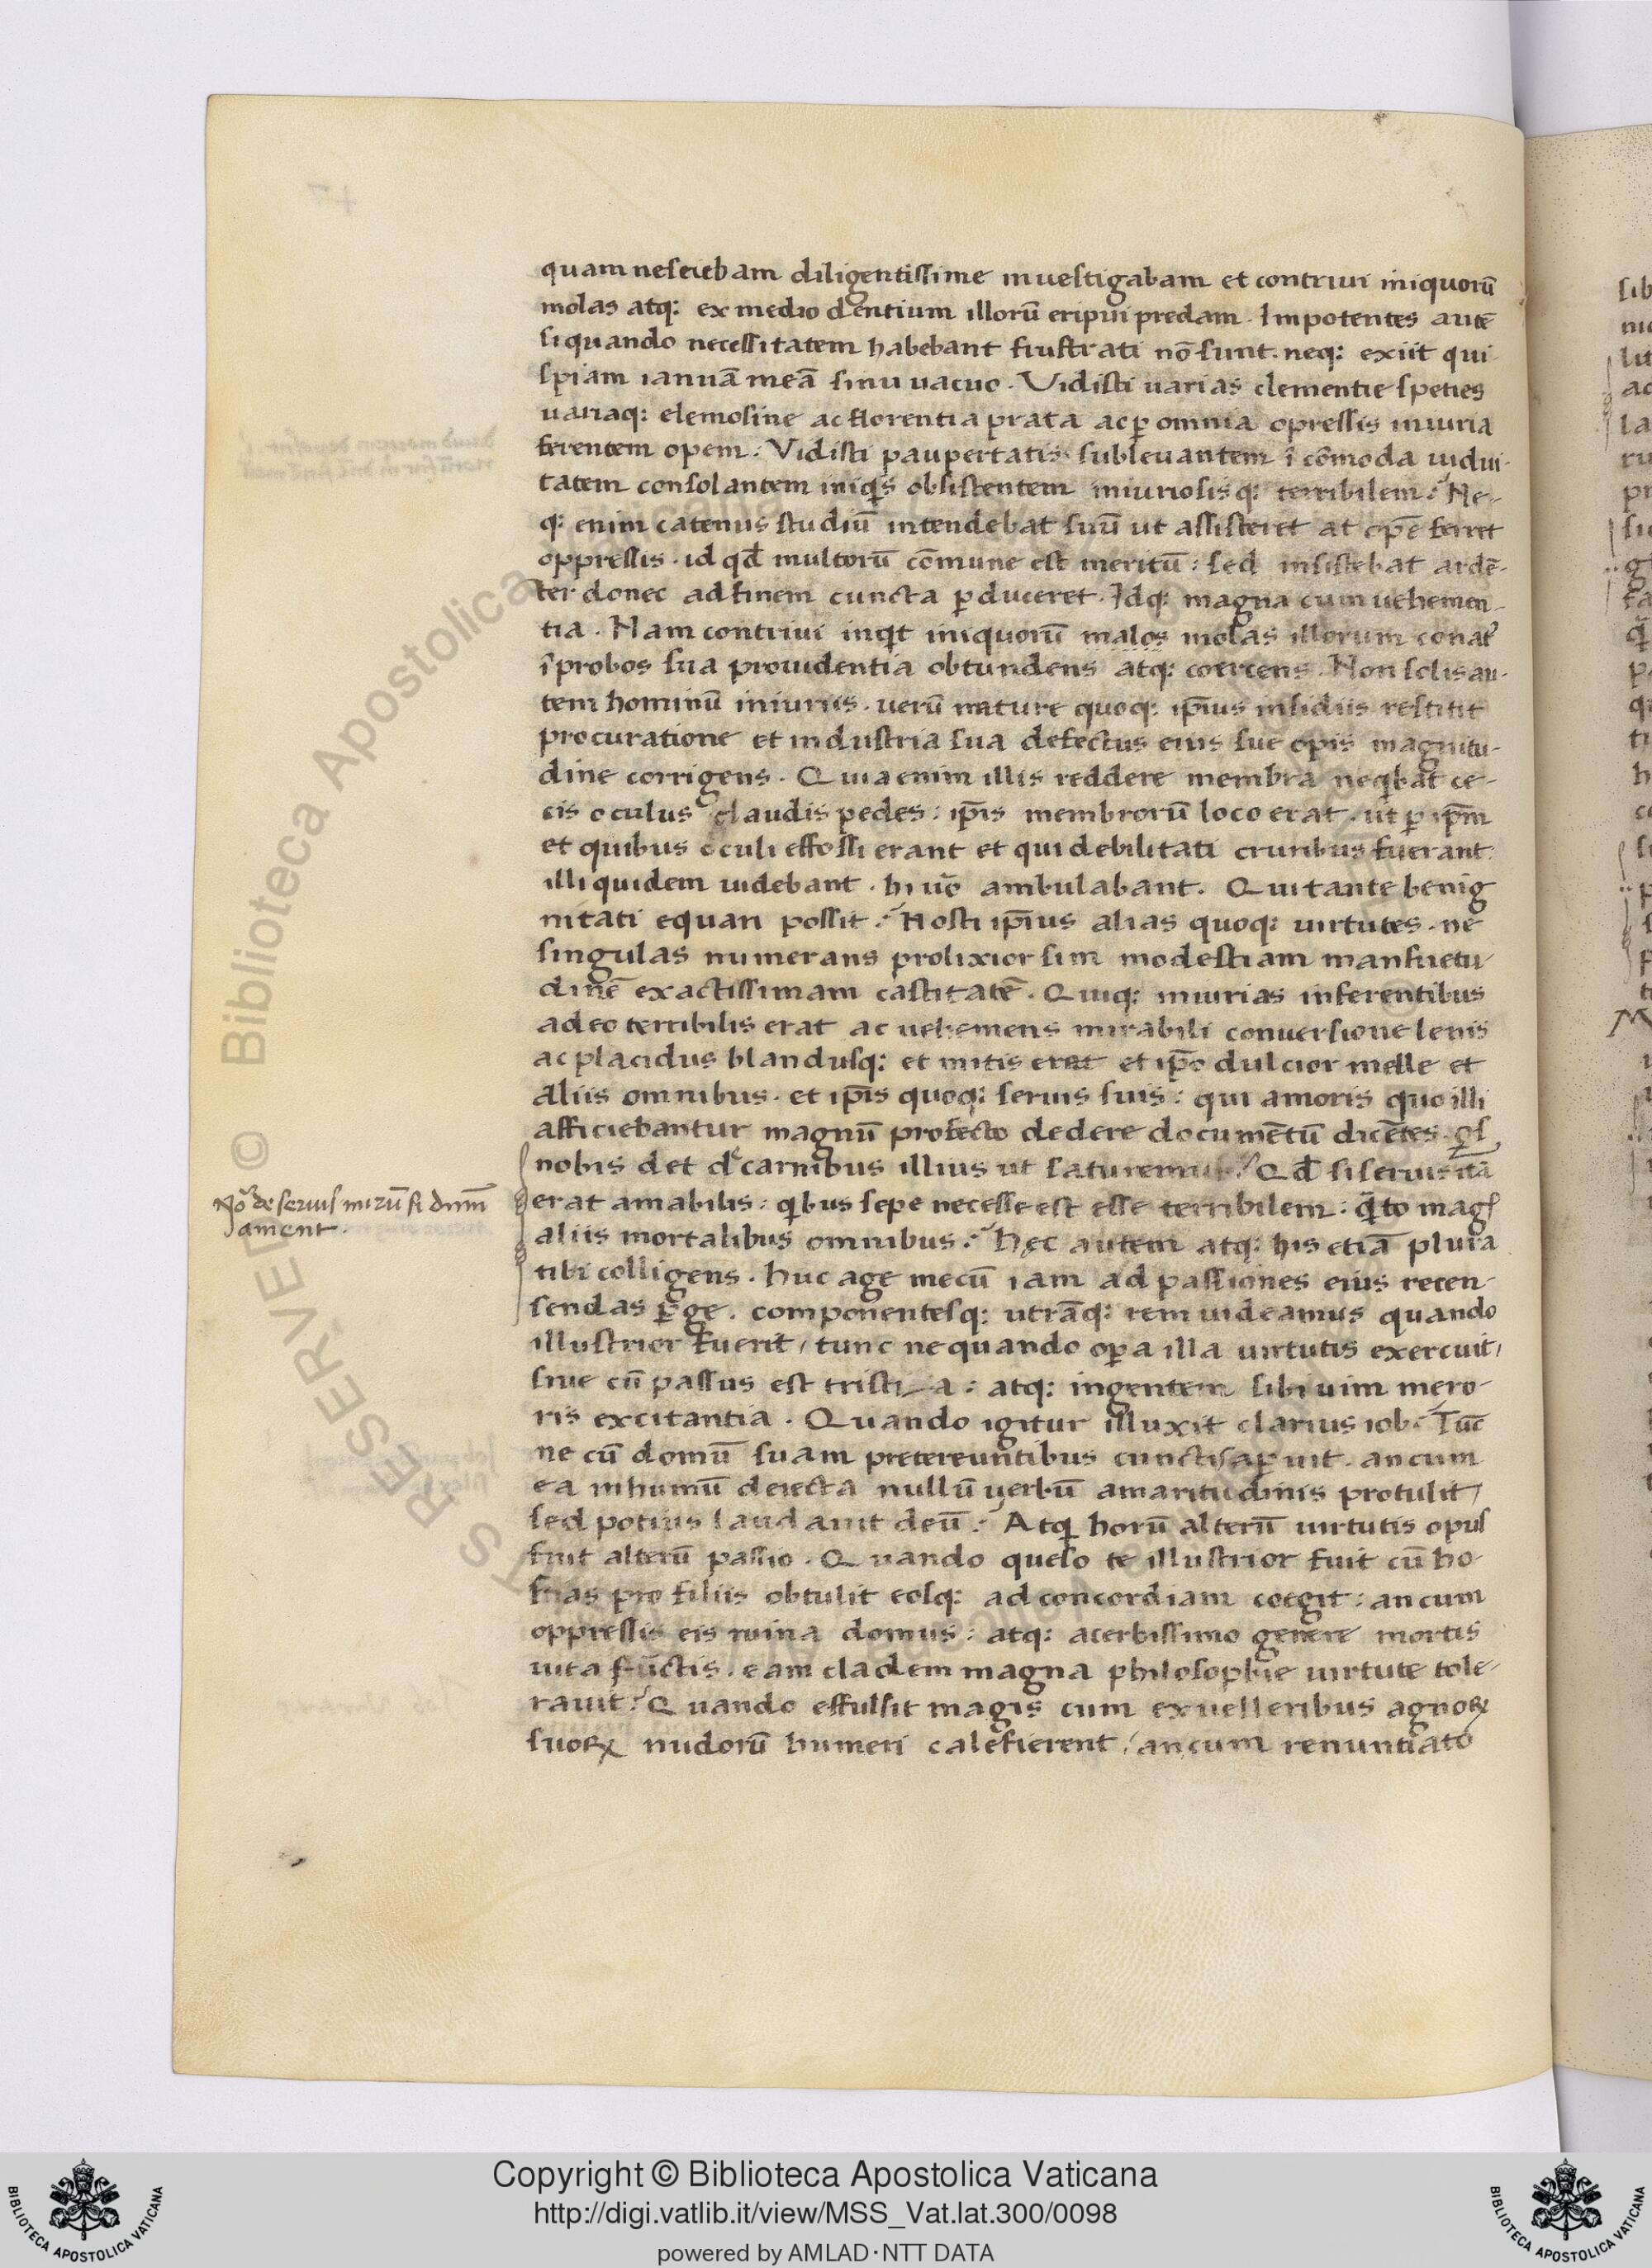 quam nesciebam diligentissime inuestigabam et contriui iniquorū
molas atq; ex medio dentium illorū eripui predam. Impotentes autē
siquando necessitatem habebant frustrati nō sunt. neq; exiit qui
spiam ianuā meā sinu uacuo. Vidisti uarias clementie speties
uariaq; elemosine ac florentia prata ac p̱ omnia opressis iniuria
ferentem opem: Vidisti paupertatis subleuantem īcōmoda uidui-
tatem consolantem iniq̇s obsistentem iniuriosisq; terribilem? Ne-
q; enim catenus studiū intendebat suū ut assisteret at opē ferret
oppressis. id qd̄ multorū cōmune est meritū: sed insistebat ardē-
ter donec ad finem cuncta p̱duceret. Idq; magna cum uehemen-
tia. Nam contriui inq̇t iniquorū malos molas illorum conat᷒
īprobos sua prouidentia obtundens atq; coercens. Non solis au-
tem hominū iniuriis. uerū nature quoq; ip̄ius insidiis restitit
procuratione et industria sua defectus eius sue opis magnitu-
dine corrigens. Quia enim illis reddere membra neq̇bat ce-
cis oculus claudis pedes: ip̄is membrorū loco erat. ut p̱ ip̄m
et quibus oculi effossi erant et qui debilitati cruribus fuerant
illi quidem uidebant. hi uō ambulabant. Qui tante benig
nitati equari possit? Nosti ip̄ius alias quoq; uirtutes. ne
singulas numerans prolixior sim modestiam mansuetu-
dinē exactissimam castitatē. Quiq; iniurias inferentibus
adeo terribilis erat ac uehemens mirabili conuersione lenis
ac placidus blandusq; et mitis erat et ip̄o dulcior melle et
aliis omnibus. et ip̄is quoq; seruis suis: qui amoris quo illi
afficiebantur magnū profecto dedere documētū dicētes. q̇s
nobis det de carnibus illius ut saturemur? Qd̄ si seruis itā
erat amabilis: q̇bus sepe necesse est esse terribilem: q̄to mag᷒
aliis mortalibus omnibus? Hęc autem atq; his etiā plura
tibi colligens. huc age mecū iam ad passiones eius recen-
sendas p̱ge. componentesq; utrāq; rem uideamus quando
illustrior fuerit, tunc ne quando op̱a illa uirtutis exercuit,
siue cū passus est tristia: atq; ingentem sibi uim mero-
ris excitantia. Quando igitur illuxit clarius iob? Tūc
ne cū domū suam pretereuntibus cunctis ap̱uit. an cum
ea in humū deiecta nullū uerbū amaritudinis protulit,
sed potius laudauit deū? Atq̇ horū alterū uirtutis opus
fuit alterū passio. Quando queso te illustrior fuit cū ho-
stias pro filiis obtulit eosq; ad concordiam coegit: an cum
oppressis eis ruina domus: atq; acerbissimo genere mortis
uita fūctis. eam cladem magna philosophie uirtute tole-
rauit? Quando effulsit magis cum ex uelleribus agnoꝝ
suoꝝ nudorū humeri calefierent, an cum renuntiato
Nō de seruis mirū si dnm̄
ament.
Copyright © Biblioteca Apostolica Vaticana
http://digi.vatlib.it/view/MSS_Vat.lat.300/0098
powered by AMLAD·NTT DATA
BIBLIOTECA APOSTOLICA VATICANA
BIBLIOTECA APOSTOLICA VATICANA